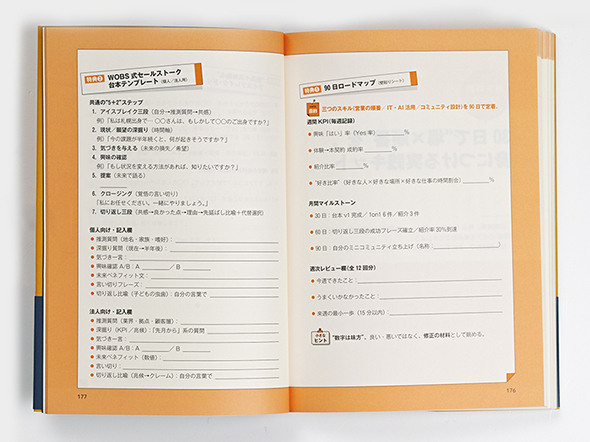 特典❷ WOBS 式セールストーク
台本テンプレート（個人／法人用）
共通の"5＋2"ステップ
1. アイスブレイク三段（自分→推測質問→共感）
例）「私は札幌出身で… 〇〇さんは、もしかして〇〇のご出身ですか？」
2. 現状／願望の深掘り（時間軸）
例）「今の課題が半年続くと、何が起きそうですか？」
3. 気づきを与える（未来の損失／希望）
4. 興味の確認
例）「もし状況を変える方法があれば、知りたいですか？」
5. 提案（未来で語る）
6. クロージング（覚悟の言い切り）
「私にお任せください。一緒にやりましょう。」
7. 切り返し三段（共感→良かった点→理由→先延ばし比喩＋代替選択）
個人向け・記入欄
● 推測質問（地名・家族・嗜好）：
● 深掘り質問（現在→半年後）：
● 気づき一言：
● 興味確認 A/B：A ／ B
● 未来ベネフィット文：
● 言い切りフレーズ：
● 切り返し比喩（子どもの虫歯）：自分の言葉で
法人向け・記入欄
● 推測質問（業界・拠点・顧客層）：
● 深掘り（KPI ／兆候）：「先月から」系の質問
● 気づき一言：
● 興味確認 A/B：A ／ B
● 未来ベネフィット（数値）：
● 言い切り：
● 切り返し比喩（兆候→クレーム）：自分の言葉で
177
90 日ロードマップ（壁貼りシート）
三つのスキル（営業の順番／ IT・AI 活用／コミュニティ設計）を 90 日で定着。
週間 KPI（毎週記録）
● 興味「はい」率（Yes 率） %
● 体験→本契約 成約率 %
● 紹介比率 %
● "好き比率"（好きな人×好きな場所×好きな仕事の時間割合） %
月間マイルストーン
● 30 日：台本 v1 完成／ 1on1 6 件／紹介 3 件
● 60 日：切り返し三段の成功フレーズ確立／紹介率 30％到達
● 90 日：自分のミニコミュニティ立ち上げ（名称： ）
週次レビュー欄（全 12 回分）
● 今週できたこと：
● うまくいかなかったこと：
● 来週の最小一歩（15 分以内）：
小さな
ヒント
"数字は味方"。良い・悪いではなく、修正の材料として眺める。
176